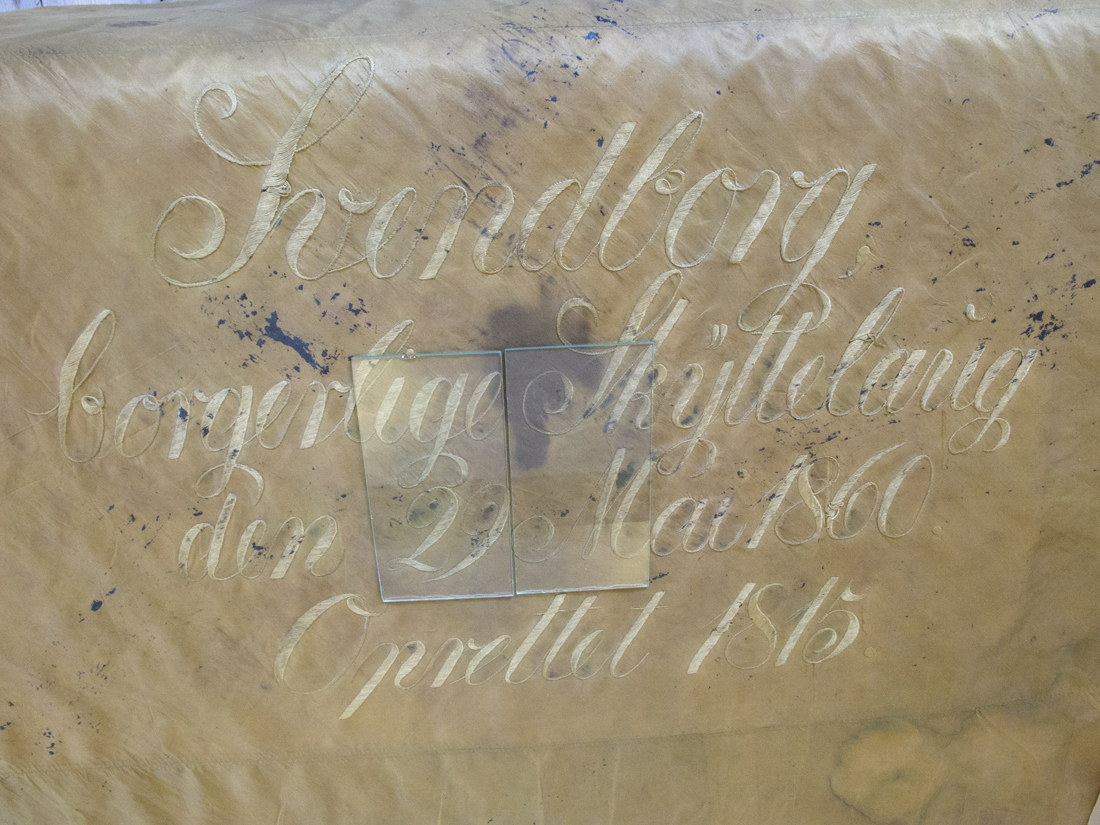 Svendborg
borgerlige Skÿttelaug
den 29 Mai 1860.
Oprettet 1815.